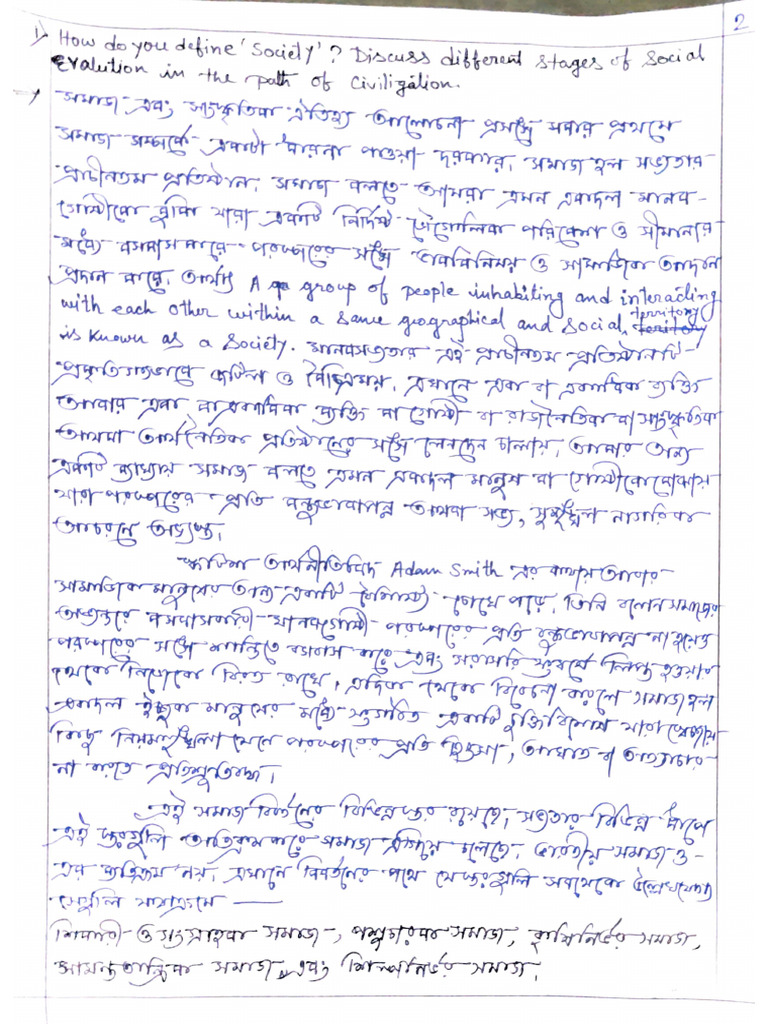 2
1) How do you define 'Society'? Discuss different stages of Social
Evalution in the path of Civilization.
→ সমাজ এবং সাংস্কৃতিক ঐতিহ্য আলোচনা প্রসঙ্গে সবার প্রথমে
সমাজ সম্পর্কে একটা ধারনা পাওয়া দরকার, সমাজ হল সভ্যতার
প্রাচীনতম প্রতিষ্ঠান, সমাজ বলতে আমরা এমন একদল মানব-
গোষ্ঠীকে বুঝি যারা একটি নির্দিষ্ট ভৌগোলিক পরিবেশ ও সীমানার
মধ্যে বসবাস করে পরস্পরের সঙ্গে ভাববিনিময় ও সামাজিক আদান
প্রদান করে, অর্থাৎ A group of people inhabiting and interacting
with each other within a same geographical and social, territory
is known as a Society. মানবসভ্যতার এই প্রাচীনতম প্রতিষ্ঠানটি
প্রকৃতিগতভাবে জটিল ও বৈচিত্রময়, এখানে এক বা একাধিক ব্যক্তি
আবার এক বা একাধিক ব্যক্তি বা গোষ্ঠী বা রাজনৈতিক বা সাংস্কৃতিক
অথবা অর্থনৈতিক প্রতিষ্ঠানের সঙ্গে লেনদেন চালায়, আবার অন্য
একটি ব্যাখ্যায় সমাজ বলতে এমন একদল মানুষ বা গোষ্ঠীকে বোঝায়
যারা পরস্পরের প্রতি বন্ধুভাবাপন্ন অথবা সভ্য, সুশৃঙ্খল নাগরিক
আচরনে অভ্যস্ত,
অর্থনীতিবিদ Adam Smith এর কথায় আবার
সামাজিক মানুষের অন্য একটি বৈশিষ্ট্য চোখে পড়ে, তিনি বলেন সমাজের
অভ্যন্তরে বসবাসকারী মানবগোষ্ঠী পরস্পরের প্রতি বন্ধুভাবাপন্ন না হয়েও
পরস্পরের সঙ্গে শান্তিতে বসবাস করে এবং সরাসরি সংঘর্ষে লিপ্ত হওয়ার
থেকে নিজেকে বিরত রাখে, এদিক থেকে বিবেচনা করলে সমাজ হল
একদল ইচ্ছুক মানুষের মধ্যে সংগঠিত একটি চুক্তিবিশেষ যারা স্বেচ্ছায়
কিছু নিয়মশৃঙ্খলা মেনে পরস্পরের প্রতি হিংসা, আঘাত বা অত্যাচার
না করতে প্রতিশ্রুতিবদ্ধ।
এই সমাজ বিবর্তনের বিভিন্ন স্তর রয়েছে, সভ্যতার বিভিন্ন ধাপে
এই স্তরগুলি অতিক্রম করে সমাজ এগিয়ে চলেছে, ভারতীয় সমাজ ও-
এর ব্যতিক্রম নয়, এখানে বিবর্তনের পথে যে স্তরগুলি সবথেকে উল্লেখযোগ্য
সেগুলি যথাক্রমে —
শিকারী ও সংগ্রাহক সমাজ, পশুচারক সমাজ, কৃষিনির্ভর সমাজ,
সামন্ততান্ত্রিক সমাজ, এবং শিল্পনির্ভর সমাজ,